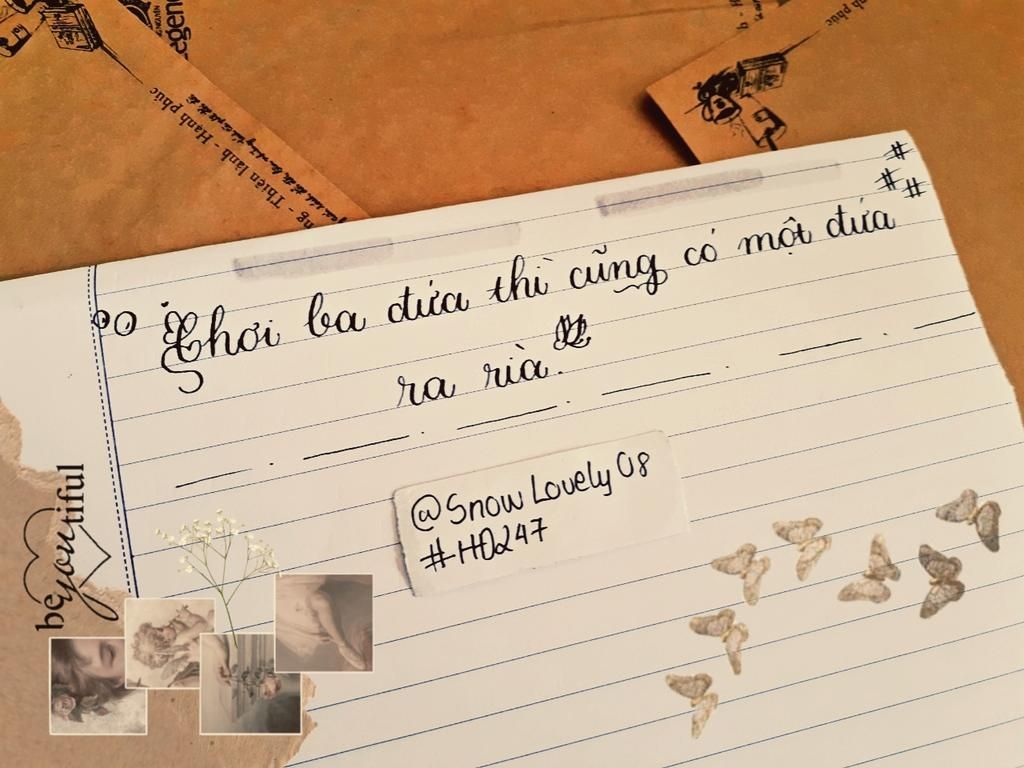 Legend
Thiện lành - Hạnh phúc
h phúc
###
Chơi ba đứa thì cũng có một đứa
ra rìa.
@Snow Lovely 08
#-HD247
beyoutiful